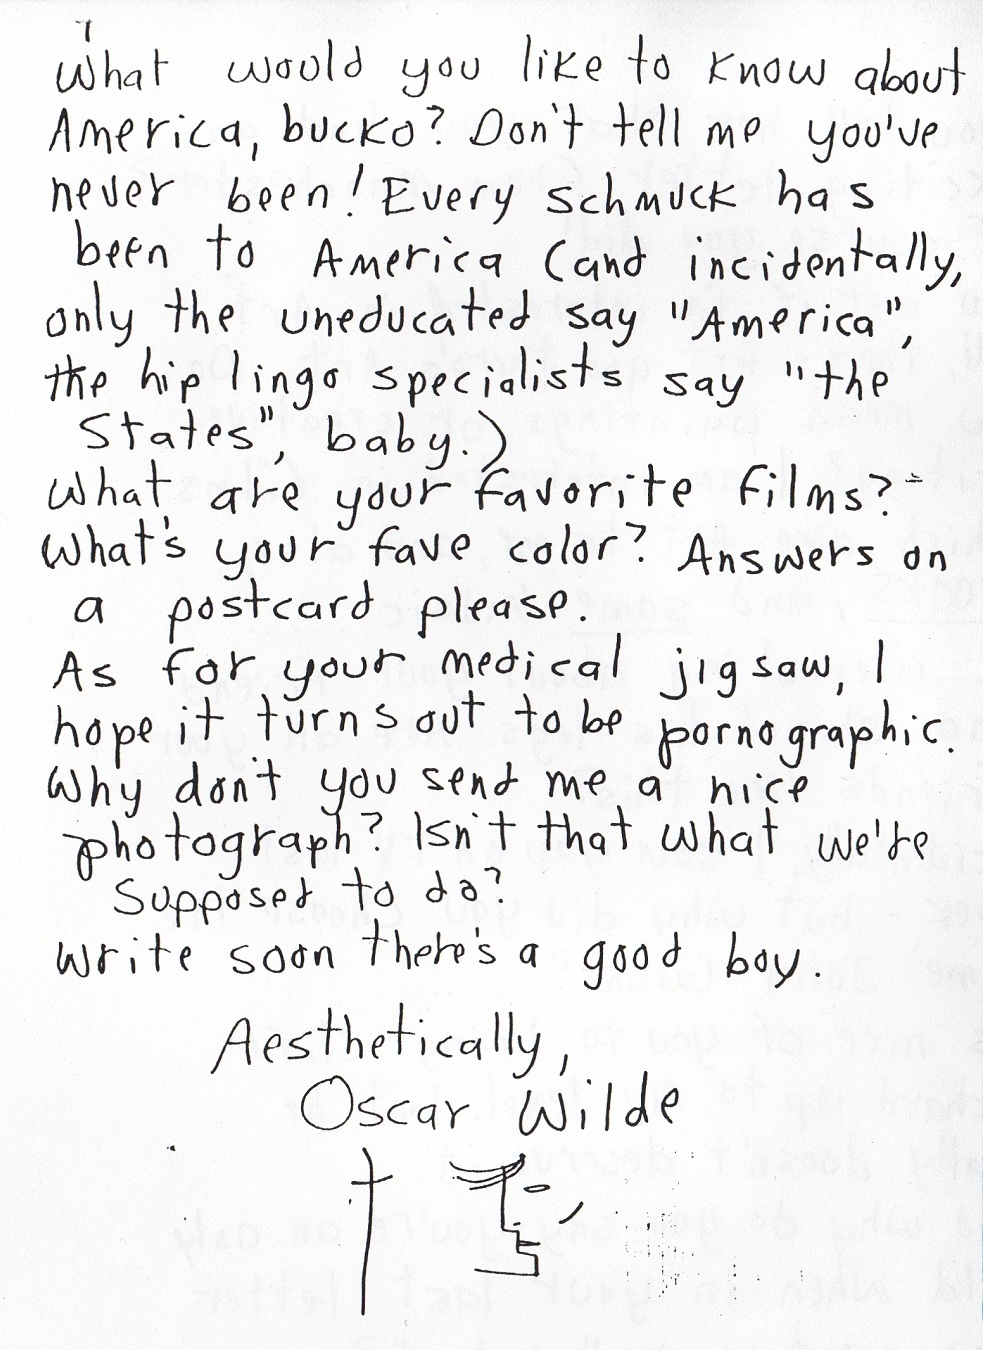 What would you like to know about
America, bucko? Don't tell me you've
never been! Every schmuck has
been to America (and incidentally,
only the uneducated say "America",
the hip lingo specialists say "the
States", baby.)
What are your favorite films?-
What's your fave color? Answers on
a postcard please.
As for your medical jigsaw, I
hope it turns out to be pornographic.
Why don't you send me a nice
photograph? Isn't that what we're
supposed to do?
Write soon there's a good boy.
Aesthetically,
Oscar Wilde